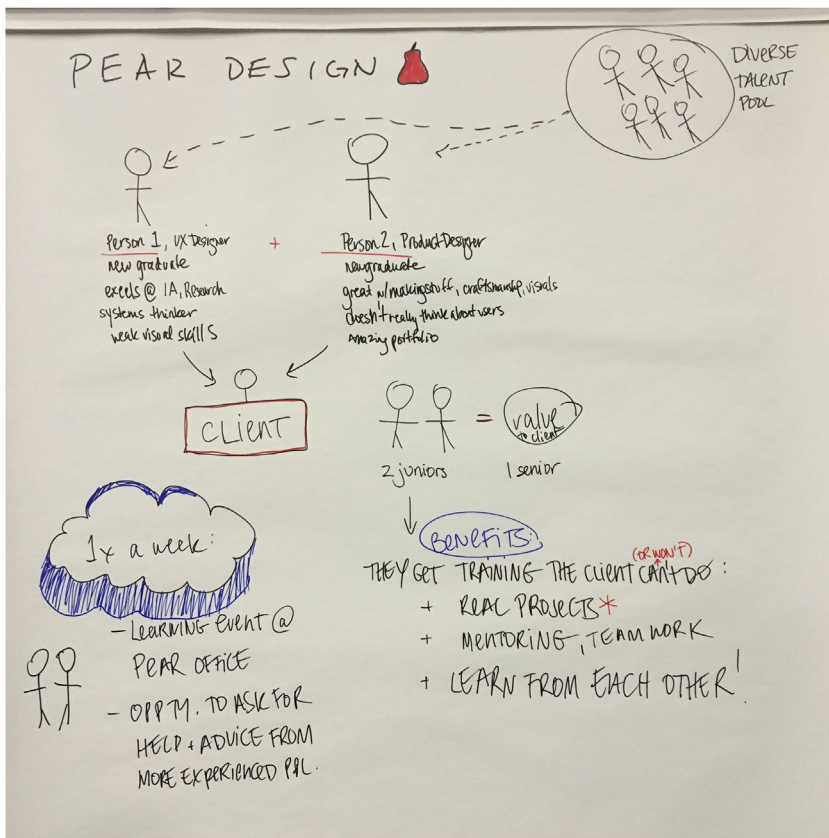 PEAR DESIGN
DIVERSE
TALENT
POOL
Person 1, UX Designer
new graduate
excels @ IA, Research
systems thinker
weak visual skills
+
Person 2, Product Designer
new graduate
great w/making stuff, craftsmanship, visuals
doesn't really think about users
Amazing portfolio
CLIENT
= value
to client
2 juniors
1 senior
BENEFITS:
(OR WON'T)
THEY GET TRAINING THE CLIENT CAN'T DO:
+ REAL PROJECTS*
+ MENTORING, TEAMWORK
+ LEARN FROM EACH OTHER!
1x a week:
- LEARNING EVENT @
PEAR OFFICE
- OPPTY. TO ASK FOR
HELP + ADVICE FROM
MORE EXPERIENCED PPL.